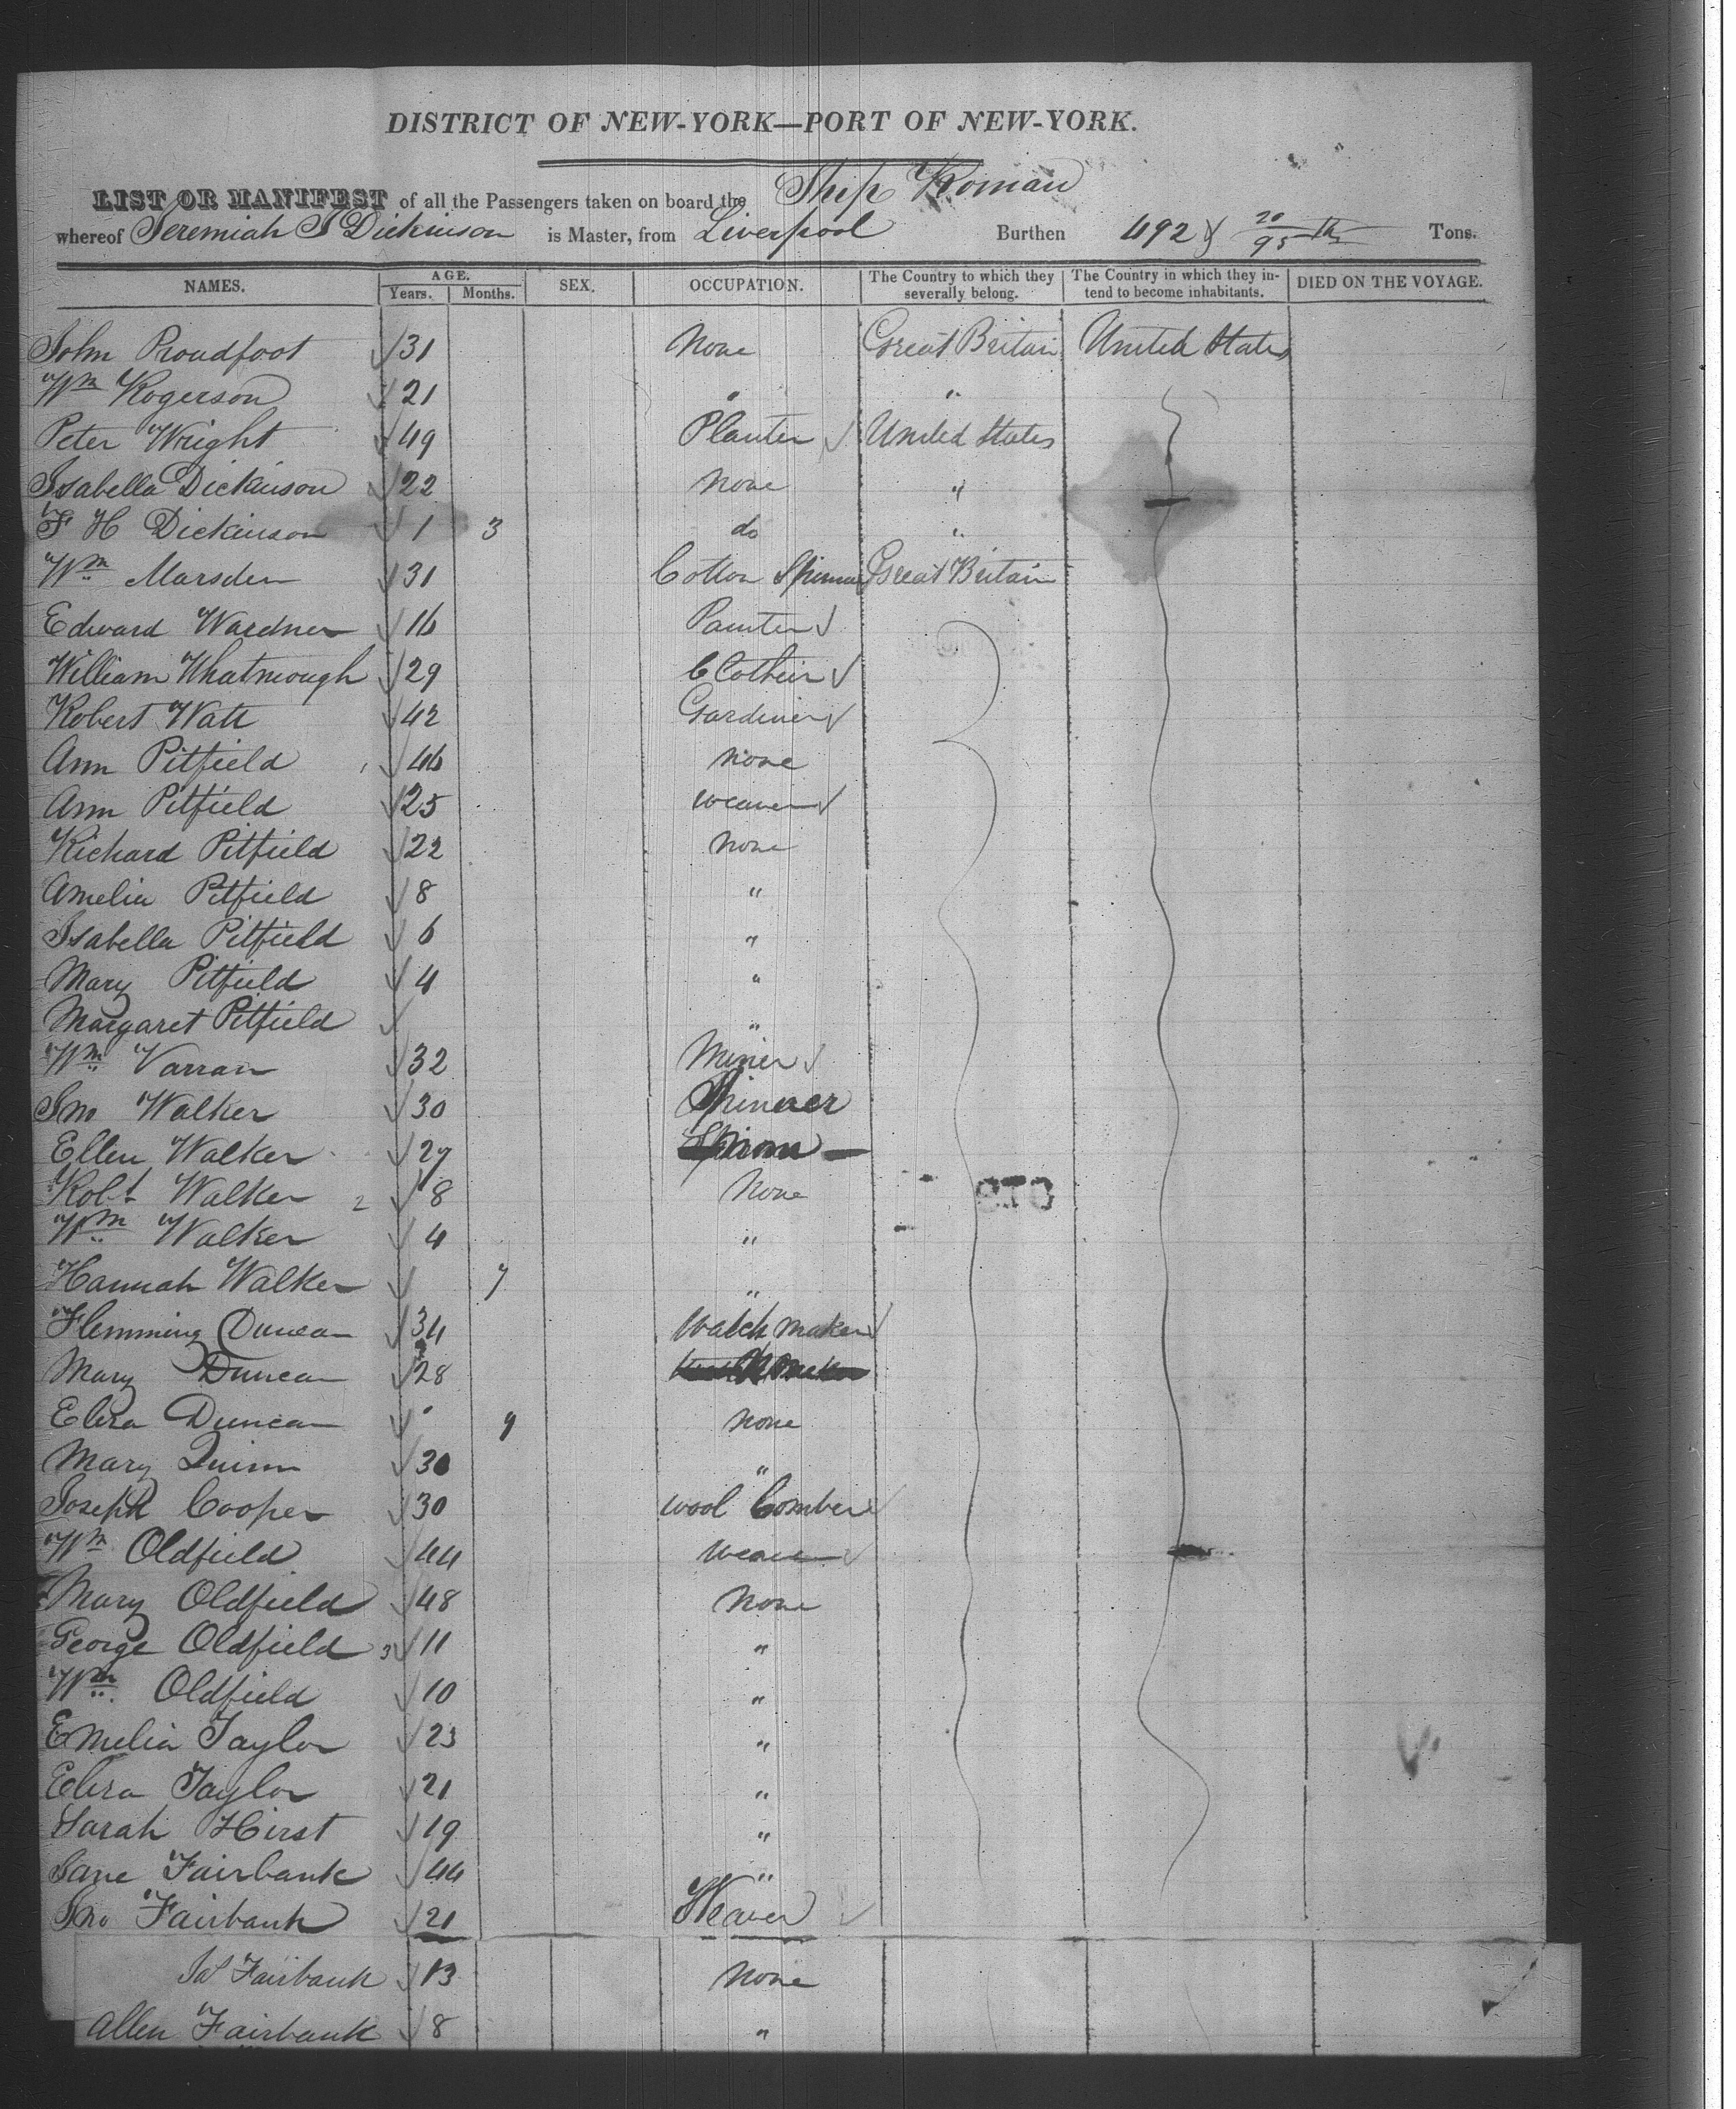 DISTRICT OF NEW-YORK—PORT OF NEW-YORK.
LIST OR MANIFEST of all the Passengers taken on board the Ship Roman
whereof Jeremiah J Dickinson is Master, from Liverpool Burthen 492 & 20/95 ths Tons.
NAMES. AGE. Years. Months. SEX. OCCUPATION. The Country to which they severally belong. The Country in which they intend to become inhabitants. DIED ON THE VOYAGE.
John Proudfoot 31 None Great Britain United States
Wm Rogerson 21 " "
Peter Wright 49 Planter United States
Isabella Dickinson 22 None "
F H Dickinson 1 3 do "
Wm Marsden 31 Cotton Spinner Great Britain
Edward Wardner 16 Painter
William Whatmough 29 Clothier
Robert Watt 42 Gardiner
Ann Pitfield 46 None
Ann Pitfield 25 weaver
Richard Pitfield 22 None
Amelia Pitfield 8 "
Isabella Pitfield 6 "
Mary Pitfield 4 "
Margaret Pitfield "
Wm Varran 32 Miner
Jno Walker 30 Spinner
Ellen Walker 27
Robt Walker 2 8 None
Wm Walker 4 "
Hannah Walker 7 "
Flemming Duncan 34 Watch maker
Mary Duncan 28
Eliza Duncan 9 None
Mary Quinn 30 "
Joseph Cooper 30 wool Comber
Wm Oldfield 44 Weaver
Mary Oldfield 48 None
George Oldfield 3 11 "
Wm Oldfield 10 "
Emelia Taylor 23 "
Eliza Taylor 21 "
Sarah Hirst 19 "
Jane Fairbank 44 "
Jno Fairbank 21 Weaver
Jas Fairbank 13 None
Allen Fairbank 8 "